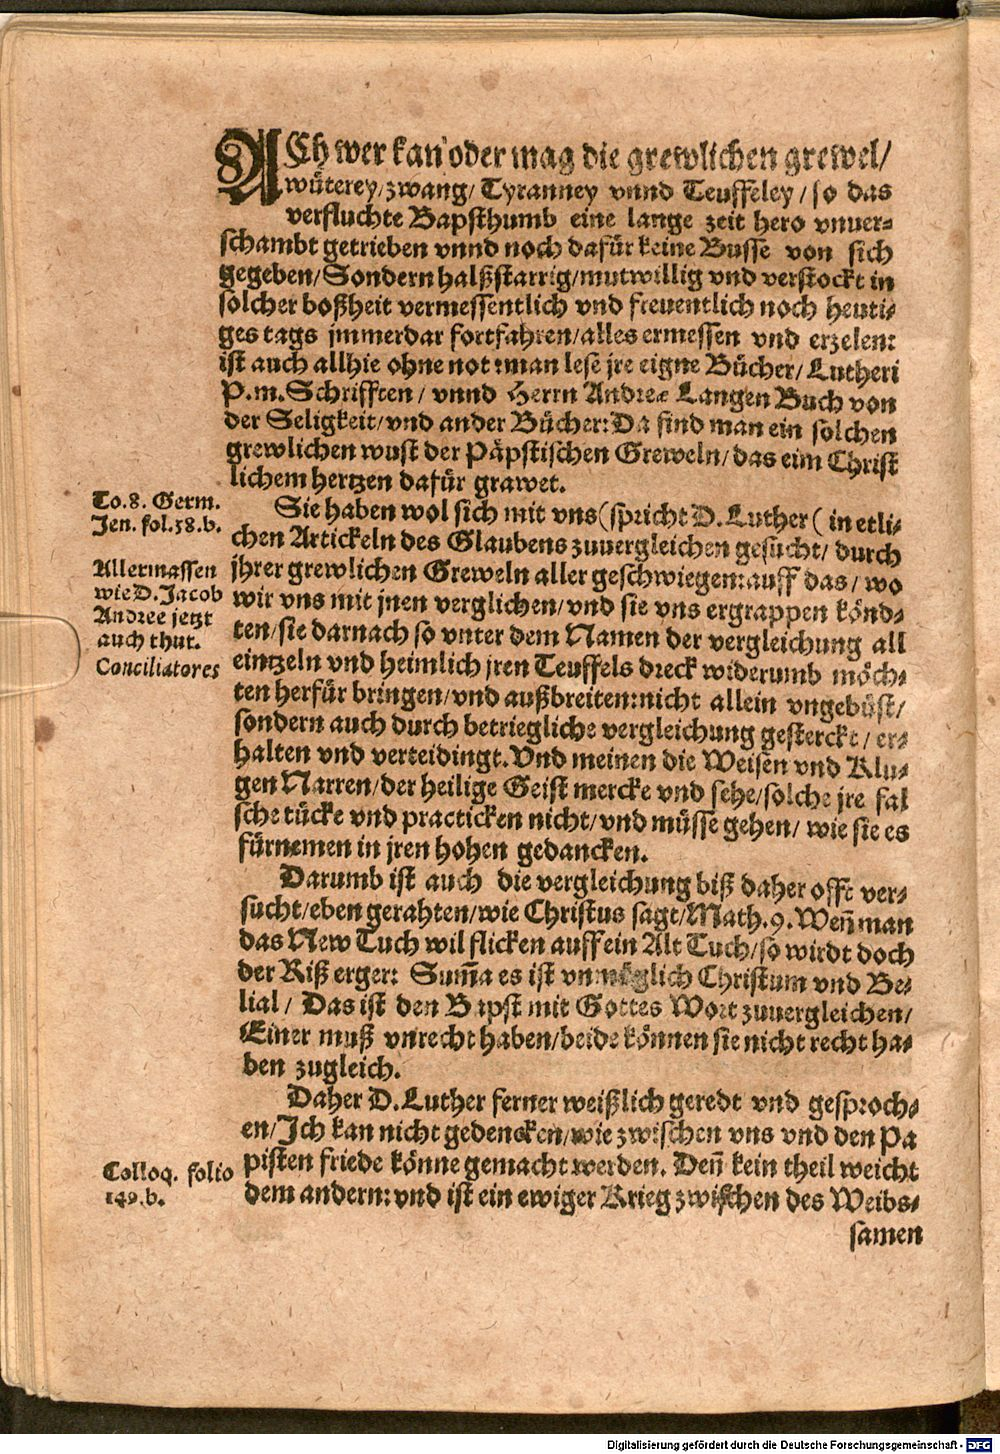 ACh wer kan oder mag die grewlichen grewel/
wüterey/zwang/ Tyranney vnnd Teuffeley/so das
verfluchte Bapsthumb eine lange zeit hero vnuer-
schambt getrieben vnnd noch dafür keine Busse von sich
gegeben/Sondern halßstarrig/mutwillig vnd verstockt in
solcher boßheit vermessentlich vnd freuentlich noch heuti-
ges tags jmmerdar fortfahren/alles ermessen vnd erzelen:
ist auch allhie ohne not:man lese jre eigne Bücher/Lutheri
P.m.Schrifften/ vnnd Herrn Andreæ Langen Buch von
der Seligkeit/vnd ander Bücher:Da find man ein solchen
grewlichen wust der Päpstischen Greweln/das eim Christ
lichem hertzen dafür grawet.
To.8. Germ.
Jen. fol.38.b.
Allermassen
wie D.Jacob
Andree jetzt
auch thut.
Conciliatores
Sie haben wol sich mit vns(spricht D.Luther( in etli-
chen Artickeln des Glaubens zuuergleichen gesucht/ durch
jhrer grewlichen Greweln aller geschwiegen:auff das/ wo
wir vns mit jnen verglichen/vnd sie vns ergrappen könd-
ten/sie darnach so vnter dem Namen der vergleichung all
eintzeln vnd heimlich jren Teuffels dreck widerumb möch-
ten herfür bringen/vnd außbreiten:nicht allein vngebüst/
sondern auch durch betriegliche vergleichung gesterckt/ er-
halten vnd verteidingt.Vnd meinen die Weisen vnd Klu-
gen Narren/der heilige Geist mercke vnd sehe/solche jre fal
sche tücke vnd practicken nicht/vnd müsse gehen/ wie sie es
fürnemen in jren hohen gedancken.
Darumb ist auch die vergleichung biß daher offt ver-
sucht/eben gerahten/wie Christus sagt/Math.9.Weñ man
das New Tuch wil flicken auff ein Alt Tuch/so wirdt doch
der Riß erger: Sum̃a es ist vnmöglich Christum vnd Be-
lial/ Das ist den Bapst mit Gottes Wort zuuergleichen/
Einer muß vnrecht haben/beide können sie nicht recht ha-
ben zugleich.
Daher D.Luther ferner weißlich geredt vnd gesproch-
en/Jch kan nicht gedencken/wie zwischen vns vnd den Pa
pisten friede könne gemacht werden. Deñ kein theil weicht
dem andern:vnd ist ein ewiger Krieg zwischen des Weibs-
Colloq. folio
149.b.
samen
Digitalisierung gefördert durch die Deutsche Forschungsgemeinschaft - DFG